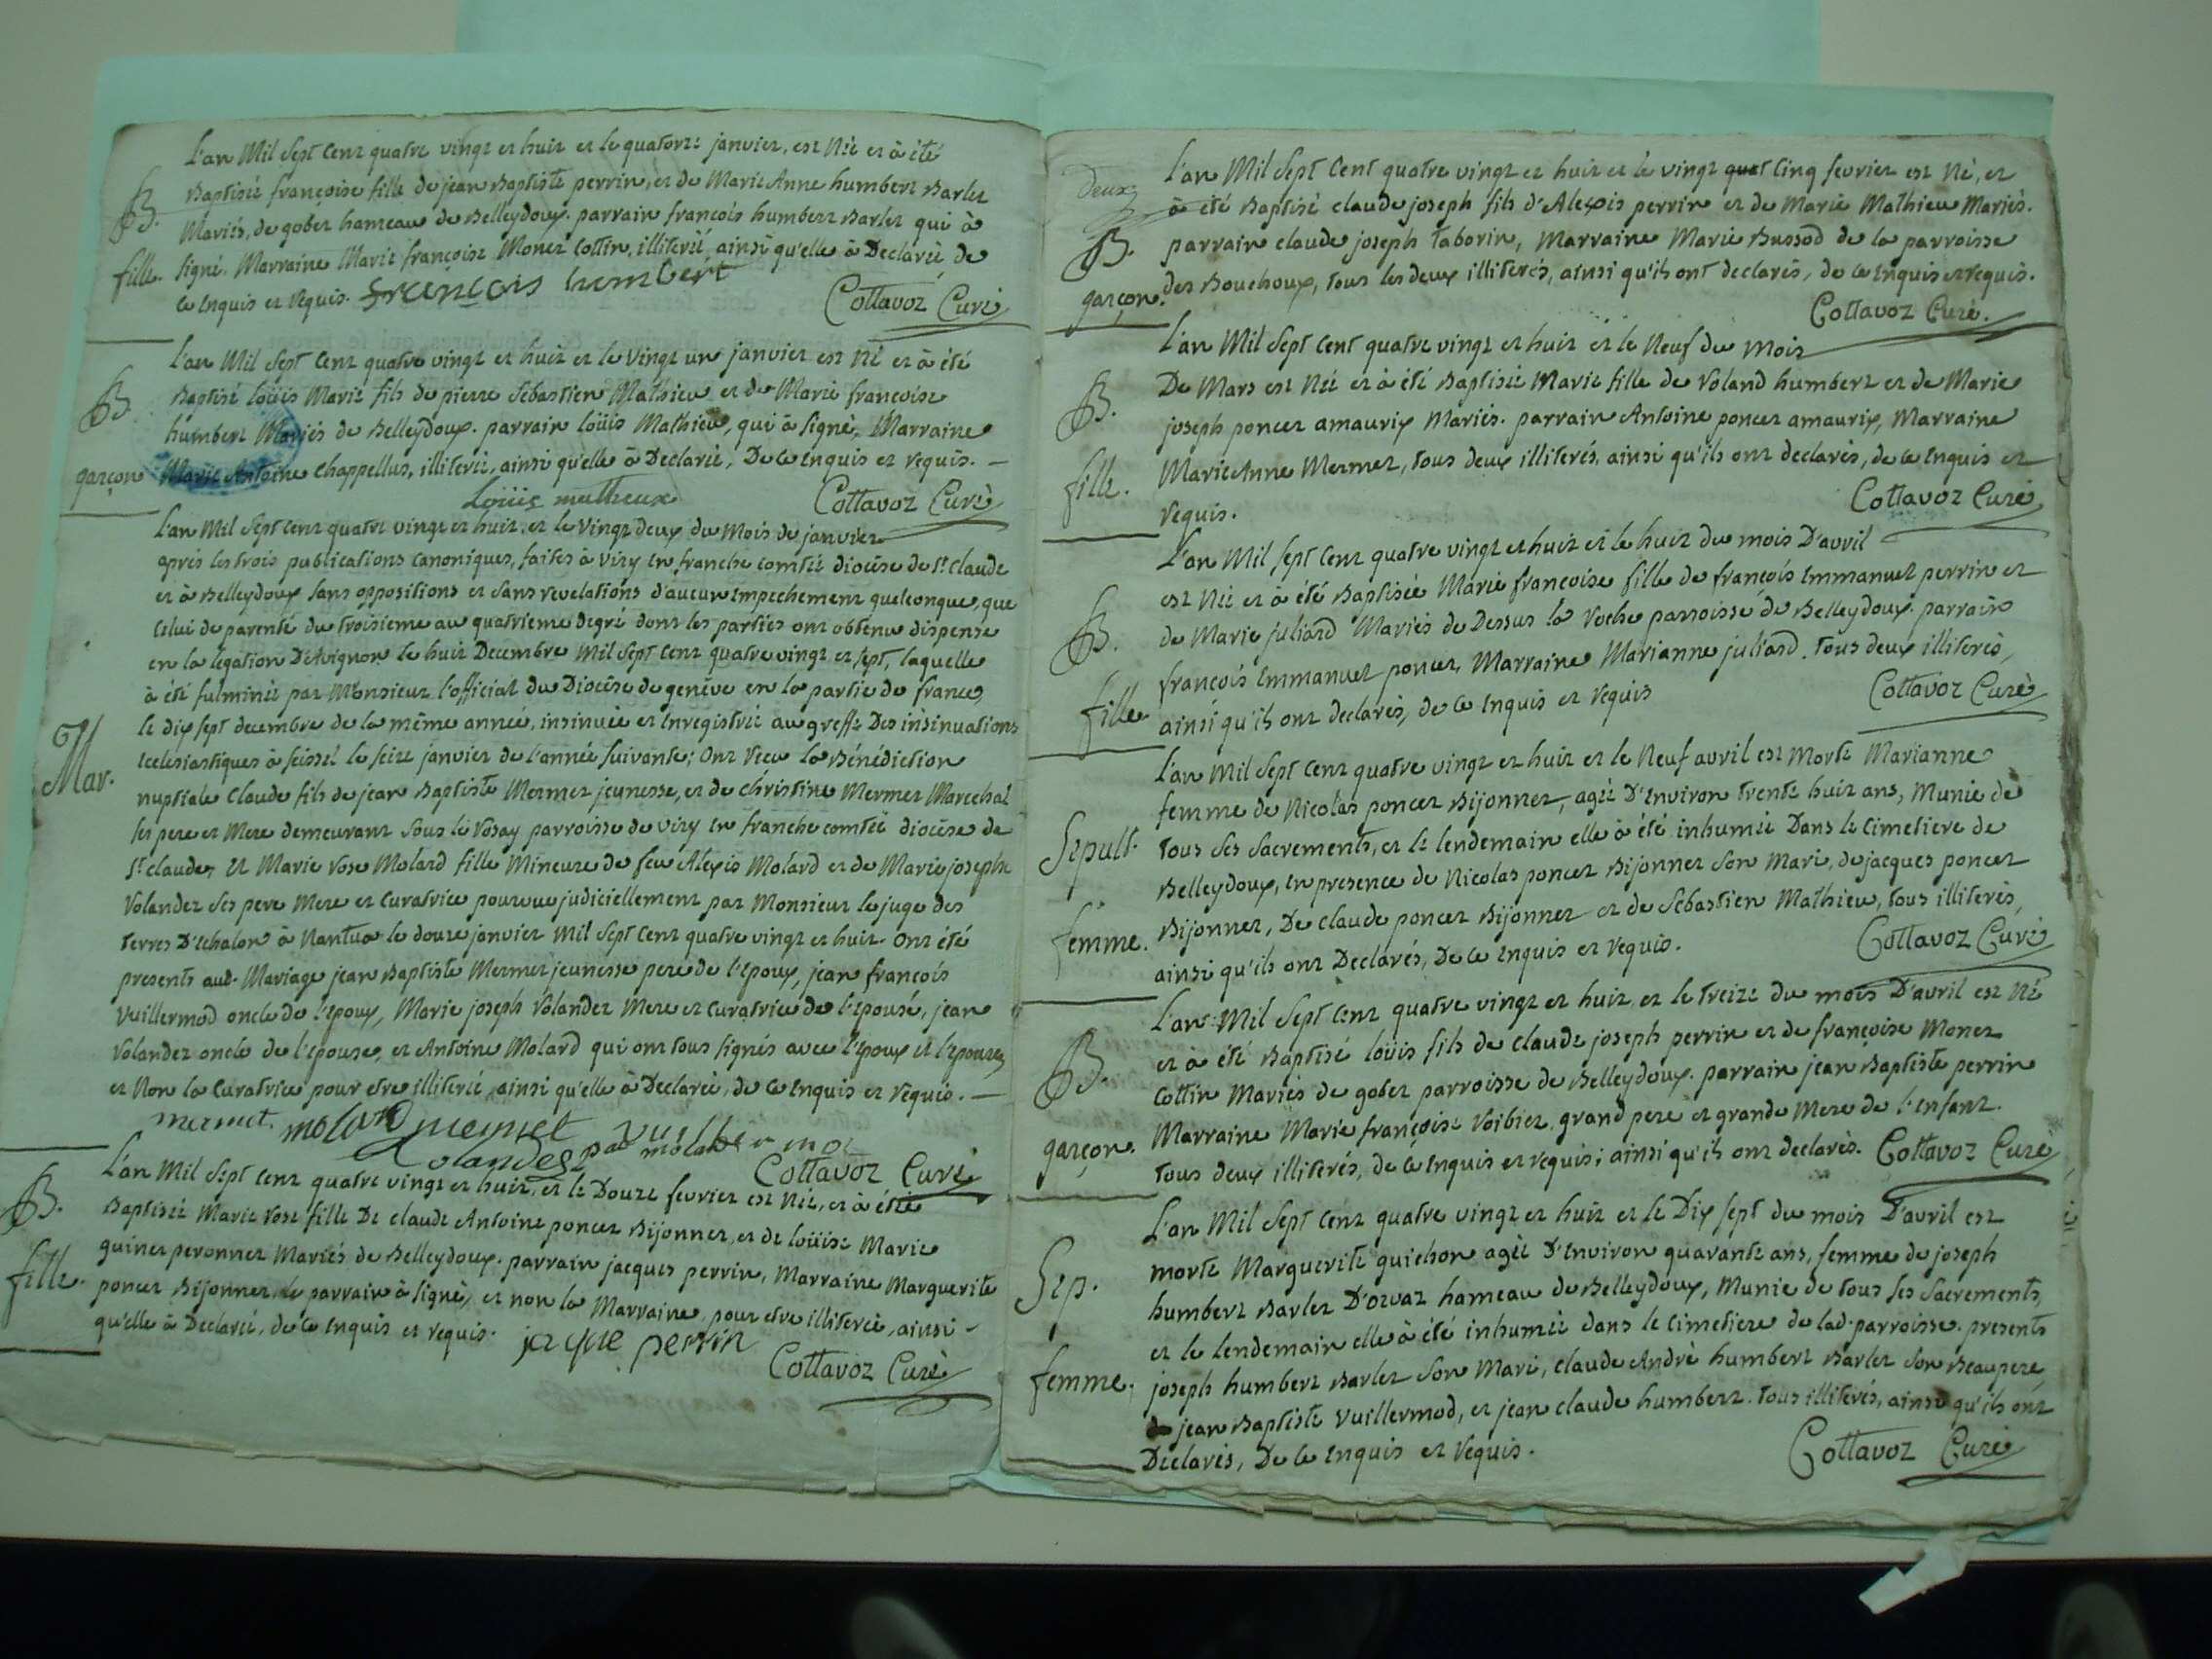 L'an Mil Sept Cent quatre vingt et huit et le quatorze janvier, est Née et à été
Baptisée françoise fille de jean Baptiste perrin, et de Marie Anne humbert Barlet
B.
Mariés, de gobet hameau de Belleydoux. parrain françois humbert Barlet qui à
fille. signé. Marraine Marie françoise Monet Cottin, illiterée, ainsi qu'elle à Declarée de
ce enquis et requis. françois humbert
Cottavoz Curé
L'an Mil Sept Cent quatre vingt et huit et le Vingt un janvier est né et à été
B. Baptisé loüis Marie fils de pierre Sébastien Mathieu et de Marie francoise
humbert Mariés de Belleydoux. parrain loüis Mathieu, qui à signé, Marraine
garçon Marie Antoine Chappellus, illiterée, ainsi qu'elle à Declarée, De ce enquis et requis. —
Loüis matheux Cottavoz Curé
L'an Mil Sept Cent quatre vingt et huit et le Vingt deux du Mois de janvier
après les trois publications Canoniques, faites à Viry en franche comtée diocèse de St. Claude
et à Belleydoux sans oppositions et sans revelations d'aucun empechement quelconque, que
celui de parenté du troisieme au quatrieme degré dont les parties ont obtenu dispense
en la légation D'Avignon le huit Decembre Mil Sept Cent quatre vingt et sept, laquelle
à été fulminée par Monsieur l'official du Diocèse de genève en la partie de france,
le dix sept decembre de la même année, insinuée et enregistrée au greffe Des insinuations
Mar. ecclesiastiques à seissel le seize janvier de l'année suivante; Ont recu la Bénédiction
nuptiale Claude fils de jean Baptiste Mermet jeunesse, et de Christine Mermet Marechal
ses pere et Mere demeurant sous le Rosay parroisse de viry en franche comtée diocèse de
St. claude, et Marie rose Molard fille Mineure de feu Alexis Molard et de Marie josephe
Volandez ses pere Mere et Curatrice pourvue judiciellement par Monsieur le juge des
terres D'echalon à Nantua le douze janvier Mil Sept Cent quatre vingt et huit. Ont été
presents aud. Mariage jean Baptiste Mermet jeunesse pere de l'epoux, jean françois
Vuillermod oncle de l'epoux, Marie joseph Volandez Mere et Curatrice de l'epouse, jean
Volandez oncle de l'epouse, et Antoine Molard qui ont tous signés avec l'epoux et l'epouse
et Non la Curatrice pour etre illiterée, ainsi qu'elle à Declarée, de ce enquis et requis. —
mermet. molard mermet
Cottavoz Curé
L'an Mil Sept Cent quatre vingt et huit, et le Douze fevrier est née, et à été
B. Baptisée Marie rose fille De claude Antoine poncet Bijonnet, et de loüise Marie
guinet peronnet Mariés de Belleydoux. parrain jacques perrin, Marraine Marguerite
fille. poncet Bijonnet, le parrain à signé, et non la Marraine, pour etre illiterée, ainsi
qu'elle à Declarée, de ce enquis et requis. jaque perrin
Cottavoz Curé
Deux
L'an Mil Sept Cent quatre vingt et huit et le vingt quat Cinq fevrier est né, et
à été Baptisé claude joseph fils d'Alexis perrin et de Marie Mathieu Mariés.
B. parrain claude joseph taborin, Marraine Marie Bussod de la parroisse
garçon. des Bouchoux, tous les deux illiterés, ainsi qu'ils ont declarés, de ce enquis et requis.
Cottavoz Curé.
L'an Mil Sept Cent quatre vingt et huit et le Neuf du Mois
B. De Mars est née et à été Baptisée Marie fille de Roland humbert et de Marie
joseph poncet amaurix Mariés. parrain Antoine poncet amaurix, Marraine
fille. Marie Anne Mermet, tous deux illiterés, ainsi qu'ils ont declarés, de ce enquis et
requis. Cottavoz Curé
L'an Mil Sept Cent quatre vingt et huit et le huit du mois D'avril
est née et à été Baptisée Marie françoise fille de françois Emmanuel perrin et
B. de Marie juliard Mariés de Dessus la roche parroisse de Belleydoux. parrain
françois Emmanuel poncet, Marraine Marianne juliard. tous deux illiterés,
fille ainsi qu'ils ont declarés, de ce enquis et requis Cottavoz Curé
L'an Mil Sept Cent quatre vingt et huit et le Neuf avril est morte Marianne
femme de Nicolas poncet Bijonnet, agée D'environ trente huit ans, Munie de
Sepult. tous ses sacrements, et le lendemain elle à été inhumée Dans le cimetiere de
Belleydoux, en presence de Nicolas poncet Bijonnet son mari, de jacques poncet
femme. Bijonnet, De claude poncet Bijonnet et de Sébastien Mathieu, tous illiterés,
ainsi qu'ils ont Declarés, De ce enquis et requis. Cottavoz Curé
L'an Mil Sept Cent quatre vingt et huit, et le treize du mois D'avril est Né
et à été Baptisé loüis fils de claude joseph perrin et de françoise Monet
B. Cottin Mariés de gobet parroisse de Belleydoux. parrain jean Baptiste perrin
garçon. Marraine Marie françoise Roibier, grand pere et grande Mere de l'enfant.
tous deux illiterés, de ce enquis et requis; ainsi qu'ils ont declarés. Cottavoz Curé
L'an Mil Sept Cent quatre vingt et huit et le Dix sept du mois D'avril est
Sep. morte Marguerite guichon agée D'environ quarante ans, femme de joseph
humbert Barlet D'orvaz hameau de Belleydoux, Munie de tous ses Sacrements,
et le lendemain elle à été inhumée dans le cimetiere de lad. parroisse. presents
femme. joseph humbert Barlet son Mari, claude André humbert Barlet son Beaupere,
jean Baptiste Vuillermod, et jean claude humbert. tous illiterés, ainsi qu'ils ont
Declarés, De ce enquis et requis. Cottavoz Curé